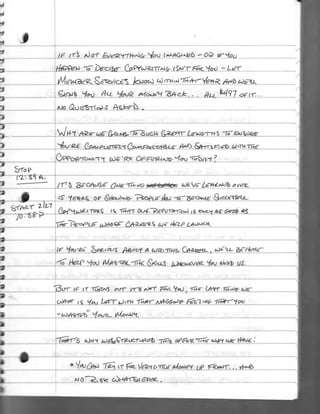 IF IT'S NOT EVERYTHING YOU IMAGINED – OR IF YOU
HAPPEN TO DECIDE COPYWRITING ISN'T FOR YOU – LET
MEMBER SERVICES KNOW WITHIN THAT YEAR AND WE'LL
SEND YOU ALL YOUR MONEY BACK... ALL $497 OF IT...
NO QUESTIONS ASKED.
WHY ARE WE GOING TO SUCH GREAT LENGTHS TO ENSURE
YOU'RE COMPLETELY COMFORTABLE AND SATISFIED WITH THE
OPPORTUNITY WE'RE OFFERING YOU TODAY?
STOP
12:39 A.
IT'S BECAUSE ONE THING WE'VE LEARNED OVER
15 YEARS OF SHOWING PEOPLE HOW TO BECOME SUCCESSFUL
START 2/27
10:58 P
COPYWRITERS IS THAT OUR REPUTATION IS ONLY AS GOOD AS
THE PEOPLE WHOSE CAREERS WE HELP LAUNCH.
IF YOU'RE SERIOUS ABOUT A WRITING CAREER, WE'LL BE HERE
TO HELP YOU MASTER THE SKILLS WHENEVER YOU NEED US.
BUT IF IT TURNS OUT IT'S NOT FOR YOU, THE LAST THING WE
WANT IS YOU LEFT WITH THAT NAGGING FEELING THAT YOU
"WASTED" YOUR MONEY.
THAT'S WHY WE STRUCTURED THIS OFFER THE WAY WE HAVE:
• YOU CAN TRY IT FOR VERY LITTLE MONEY UP FRONT... AND
NO RISK WHATSOEVER.